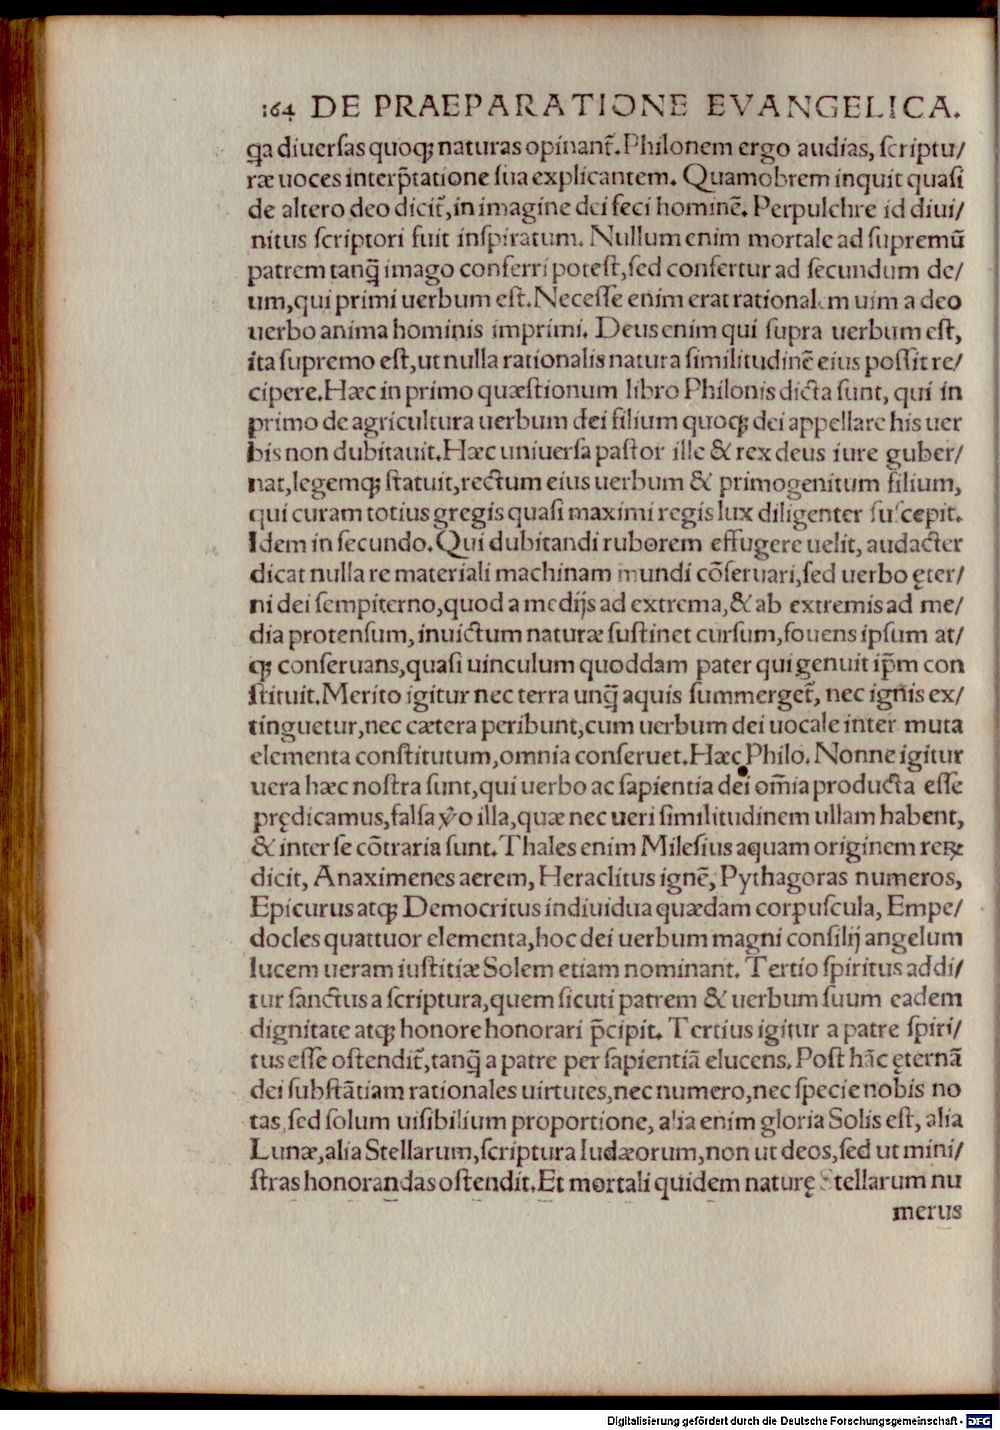 164 DE PRAEPARATIONE EVANGELICA.
ꝗa diuerſas quoqꝫ naturas opinant᷑. Philonem ergo audias, ſcriptu/
ræ uoces interp̃tatione ſua explicantem. Quamobrem inquit quaſi
de altero deo dicit᷑, in imagine dei feci hominẽ. Perpulchre id diui/
nitus ſcriptori fuit inſpiratum. Nullum enim mortale ad ſupremũ
patrem tanꝗ̃ imago conferri poteſt, ſed confertur ad ſecundum de/
um, qui primi uerbum eſt. Neceſſe enim erat rationalem uim a deo
uerbo anima hominis imprimi. Deus enim qui ſupra uerbum eſt,
ita ſupremo eſt, ut nulla rationalis natura ſimilitudinẽ eius poſſit re/
cipere. Hæc in primo quæſtionum libro Philonis dicta ſunt, qui in
primo de agricultura uerbum dei filium quoqꝫ dei appellare his uer
bis non dubitauit. Hæc uniuerſa paſtor ille & rex deus iure guber/
nat, legemqꝫ ſtatuit, rectum eius uerbum & primogenitum filium,
qui curam totius gregis quaſi maximi regis lux diligenter ſuſcepit.
Idem in ſecundo. Qui dubitandi ruborem effugere uelit, audacter
dicat nulla re materiali machinam mundi cõſeruari, ſed uerbo ęter/
ni dei ſempiterno, quod a medijs ad extrema, & ab extremis ad me/
dia protenſum, inuictum naturæ ſuſtinet curſum, fouens ipſum at/
qꝫ conſeruans, quaſi uinculum quoddam pater qui genuit ip̃m con
ſtituit. Merito igitur nec terra unꝗ̃ aquis ſummerget᷑, nec ignis ex/
tinguetur, nec cætera peribunt, cum uerbum dei uocale inter muta
elementa conſtitutum, omnia conſeruet. Hæc Philo. Nonne igitur
uera hæc noſtra ſunt, qui uerbo ac ſapientia dei om̃ia producta eſſe
prędicamus, falſa ƴo illa, quæ nec ueri ſimilitudinem ullam habent,
& inter ſe cõtraria ſunt. Thales enim Mileſius aquam originem reꝝ
dicit, Anaximenes aerem, Heraclitus ignẽ, Pythagoras numeros,
Epicurus atqꝫ Democritus indiuidua quædam corpuſcula, Empe/
docles quattuor elementa, hoc dei uerbum magni conſilij angelum
lucem ueram iuſtitiæ Solem etiam nominant. Tertio ſpiritus addi/
tur ſanctus a ſcriptura, quem ſicuti patrem & uerbum ſuum eadem
dignitate atqꝫ honore honorari p̃cipit. Tertius igitur a patre ſpiri/
tus eſſe oſtendit᷑, tanꝗ̃ a patre per ſapientiã elucens. Poſt hãc ęternã
dei ſubſtãtiam rationales uirtutes, nec numero, nec ſpecie nobis no
tas, ſed ſolum uiſibilium proportione, alia enim gloria Solis eſt, alia
Lunæ, alia Stellarum, ſcriptura Iudæorum, non ut deos, ſed ut mini/
ſtras honorandas oſtendit. Et mortali quidem naturę Stellarum nu
merus
Digitalisierung gefördert durch die Deutsche Forschungsgemeinschaft - DFG